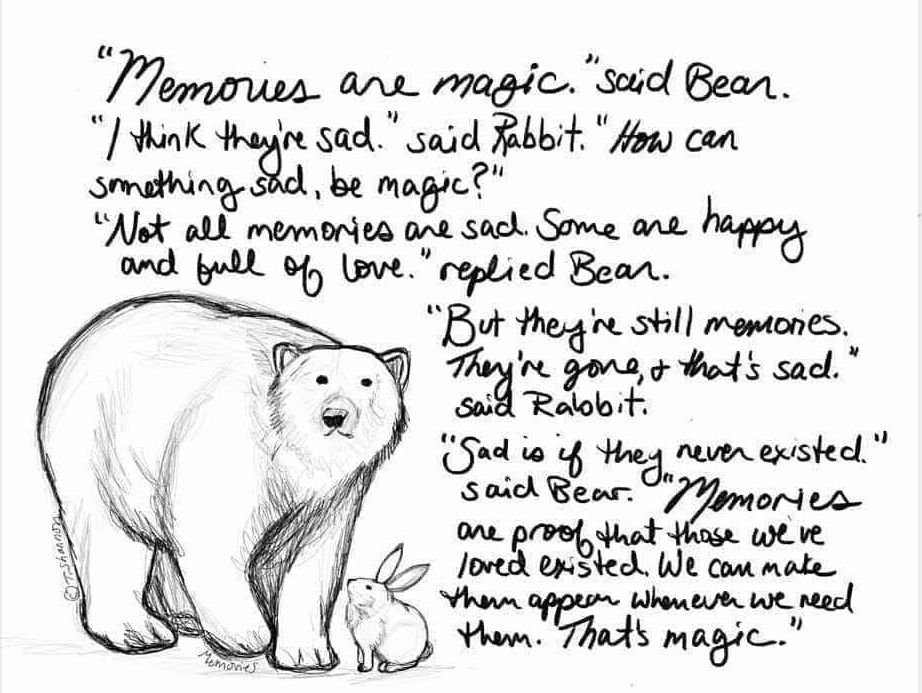 "Memories are magic." said Bear.
"I think they're sad." said Rabbit. "How can
something sad, be magic?"
"Not all memories are sad. Some are happy
and full of love." replied Bear.
"But they're still memories.
They're gone, & that's sad."
said Rabbit.
"Sad is if they never existed."
said Bear. "Memories
are proof that those we've
loved existed. We can make
them appear whenever we need
them. That's magic."
©T. Shannon
Memories